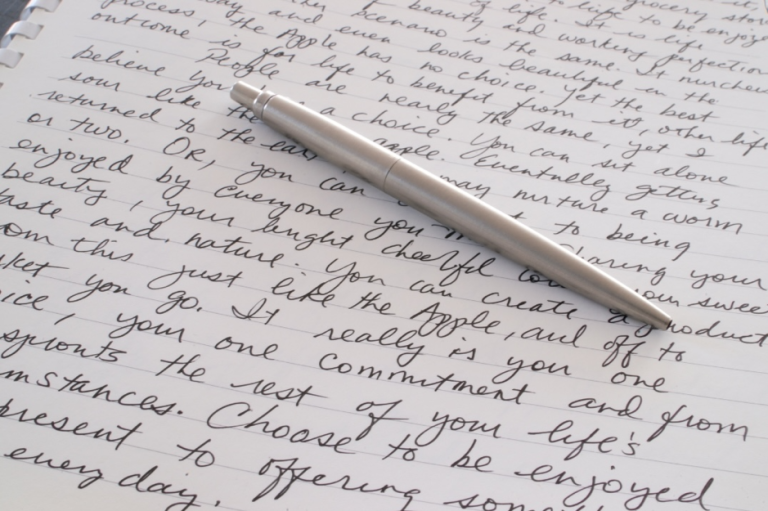 grocery store
of life. It is life to be enjoyed
beauty and working perfection
scenario is the same. It nurches
process, the Apple has no choice. Yet the best
day and even looks beautiful in the
outcome is for life to benefit from it, other life
People are nearly the same, yet I
believe you a choice. You can sit alone
sour like the apple. Eventually getting
returned to the ear may nurture a worm
or two. Or, you can to being
enjoyed by everyone you Sharing your
beauty, your bright cheerful your sweet
taste and nature. You can create a product
from this just like the Apple, and off to
market you go. It really is you one
choice, your one commitment and from
sprouts the rest of your life's
mstances. Choose to be enjoyed
present to offering
every day.